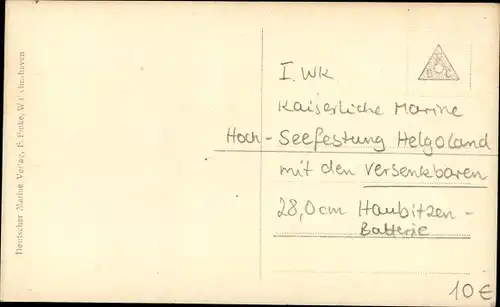 I. WK
Kaiserliche Marine
Hoch - Seefestung Helgoland
mit den versenkbaren
28,0cm Haubitzen -
Batterie
10 €
Deutscher Marine Verlag, F. Finke, Wilhelmshaven